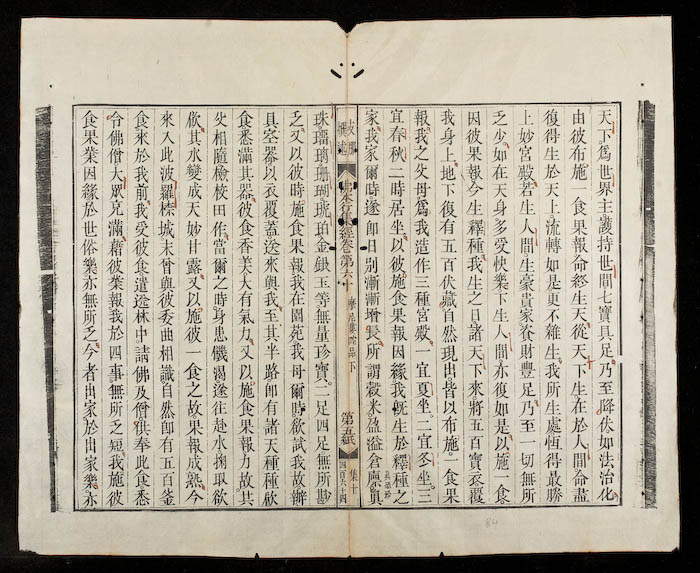 天下爲世界主護持世間七寶具足乃至降伏如法治化
由彼布施一食果報命終生天從天下生在於人間命盡
復得生於天上流轉如是更不雜生我所生處恆得最勝
上妙宮殿若生人間生豪貴家資財豐足乃至一切無所
乏少如在天身多受快樂下生人間亦復如是以施一食
因彼果報今生釋種我生之日諸天下來將五百寶衣覆
我身上地下復有五百伏藏自然現出皆以布施一食果
報我之父母爲我造作三種宮殿一宜夏坐二宜冬坐三
宜春秋二時居坐以彼施食果報因緣我旣生於釋種之
家我家爾時遂即日別漸漸增長所謂穀米盈溢倉廩眞
支那撰述
佛本行集經卷第六十
摩尼婁陀品下
第五紙
集十
四百六十四
珠瑠璃珊瑚琥珀金銀玉等無量珍寶二足四足無所尠
乏又以彼時施食果報我在園苑我母爾時欲試我故辦
具空器以衣覆蓋送來與我至其半路即有諸天種種飲
食悉滿其器彼食香美大有氣力又以施食果報力故共
父相隨檢校田作當爾之時身患饑渴遂往赴水掬取欲
飲其水變成天妙甘露又以施彼一食之故果報成熟今
來入此波羅㮈城未曾與彼委曲相識自然即有五百釜
食來於我前我受彼食遣送林中請佛及僧供奉此食悉
令佛僧大眾充滿藉彼業報我於四事無所乏短我施彼
食果業因緣於世俗樂亦無所乏今者出家於出家樂亦
84